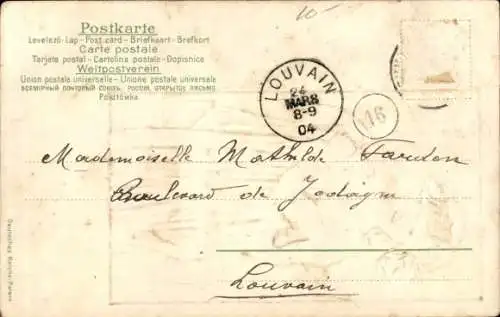 10-
Postkarte
Levelező-Lap - Post card - Briefkaart - Brefkort
Carte postale
Tarjeta postal - Cartolina postale - Dopisnice
Weltpostverein
Union postale universelle - Unione postale universale
ВСЕМІРНЫЙ ПОЧТОВЫЙ СОЮЗЪ. РОССІЯ. ОТКРЫТОЕ ПИСЬМО
LOUVAIN
24
MARS
8-9
04
116
Mademoiselle Mathilde
Boulevard de Jodoigne
Louvain